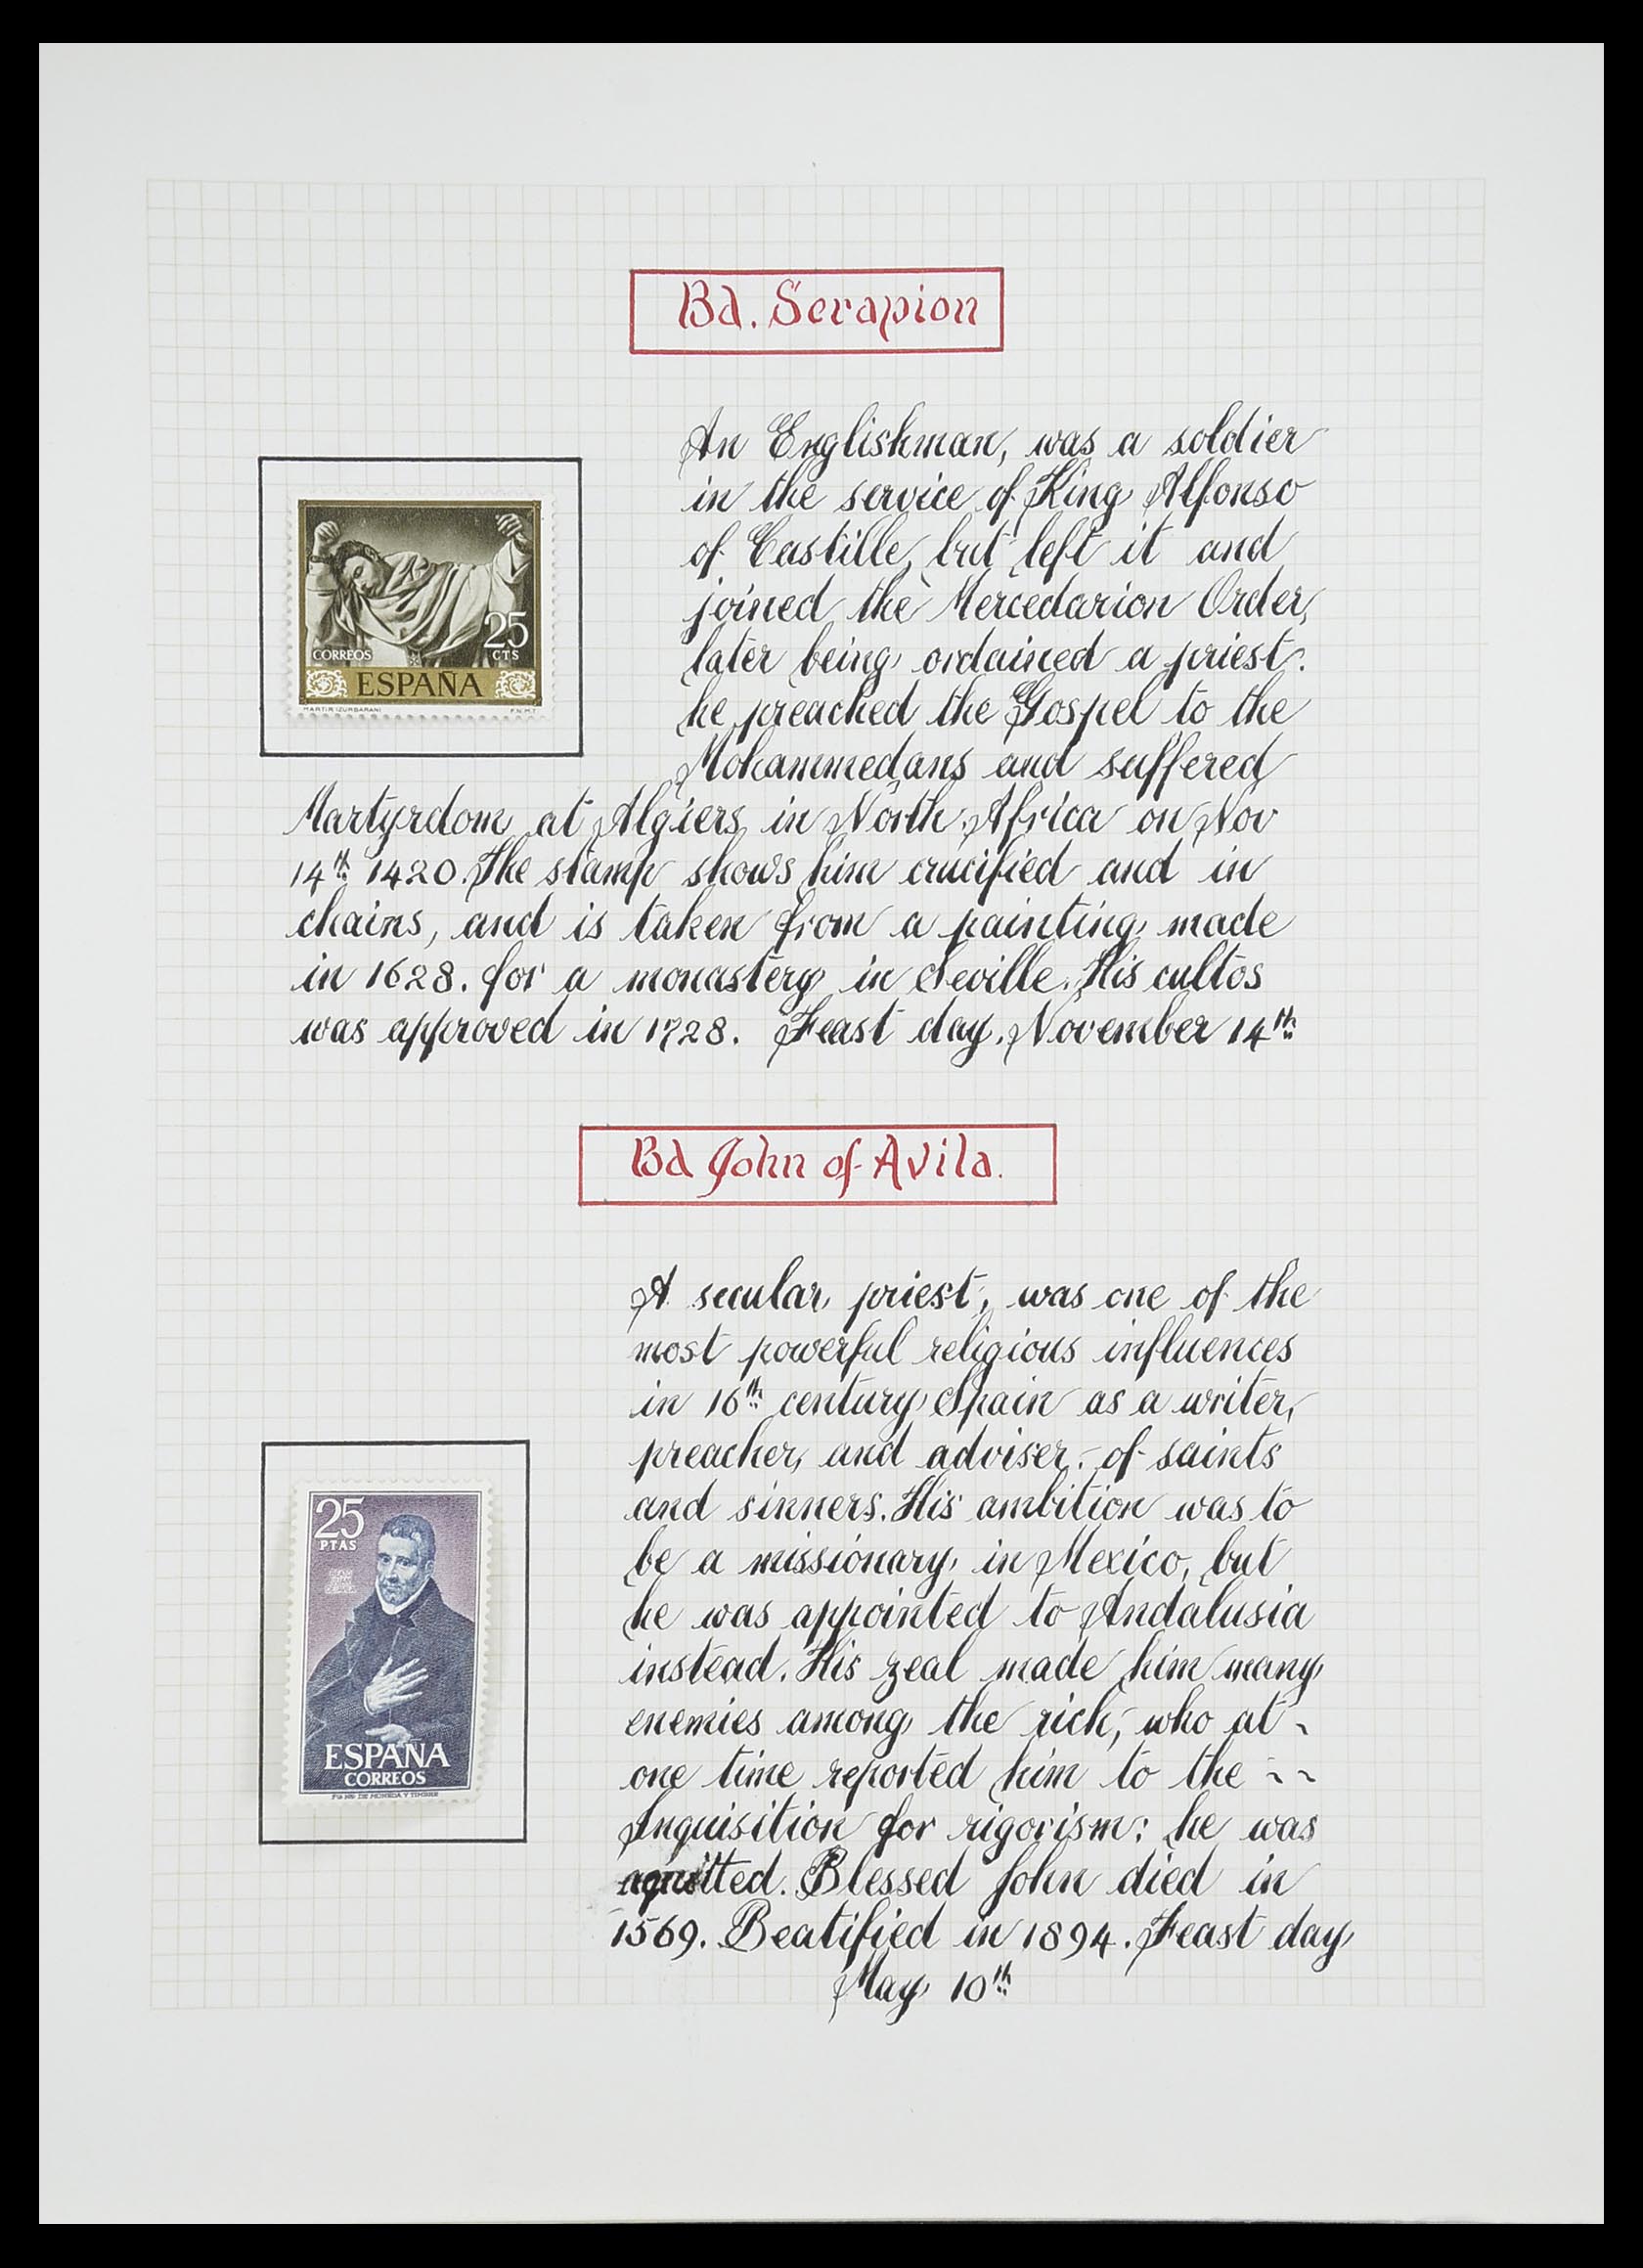 Bd. Serapion
An Englishman, was a soldier
in the service of King Alfonso
of Castille, but left it and
joined the Mercedarion Order,
later being ordained a priest.
he preached the Gospel to the
Mohammedans and suffered
25
CTS
CORREOS
ESPAÑA
MARTIR (ZURBARAN)
F.N.M.T.
Martyrdom at Algiers in North Africa on Nov
14th 1420. The stamp shows him crucified and in
chains, and is taken from a painting made
in 1628. for a monastery in Seville. His cultos
was approved in 1728. Feast day. November 14th
Bd John of Avila.
A secular priest, was one of the
most powerful religious influences
in 16th century Spain as a writer,
preacher, and adviser - of saints
and sinners. His ambition was to
be a missionary in Mexico, but
he was appointed to Andalusia
instead. His zeal made him many
enemies among the rich, who at ~
one time reported him to the ~ ~
Inquisition for rigorism: he was
aquitted. Blessed John died in
1569. Beatified in 1894. Feast day
May 10th
25
PTAS
ESPAÑA
CORREOS